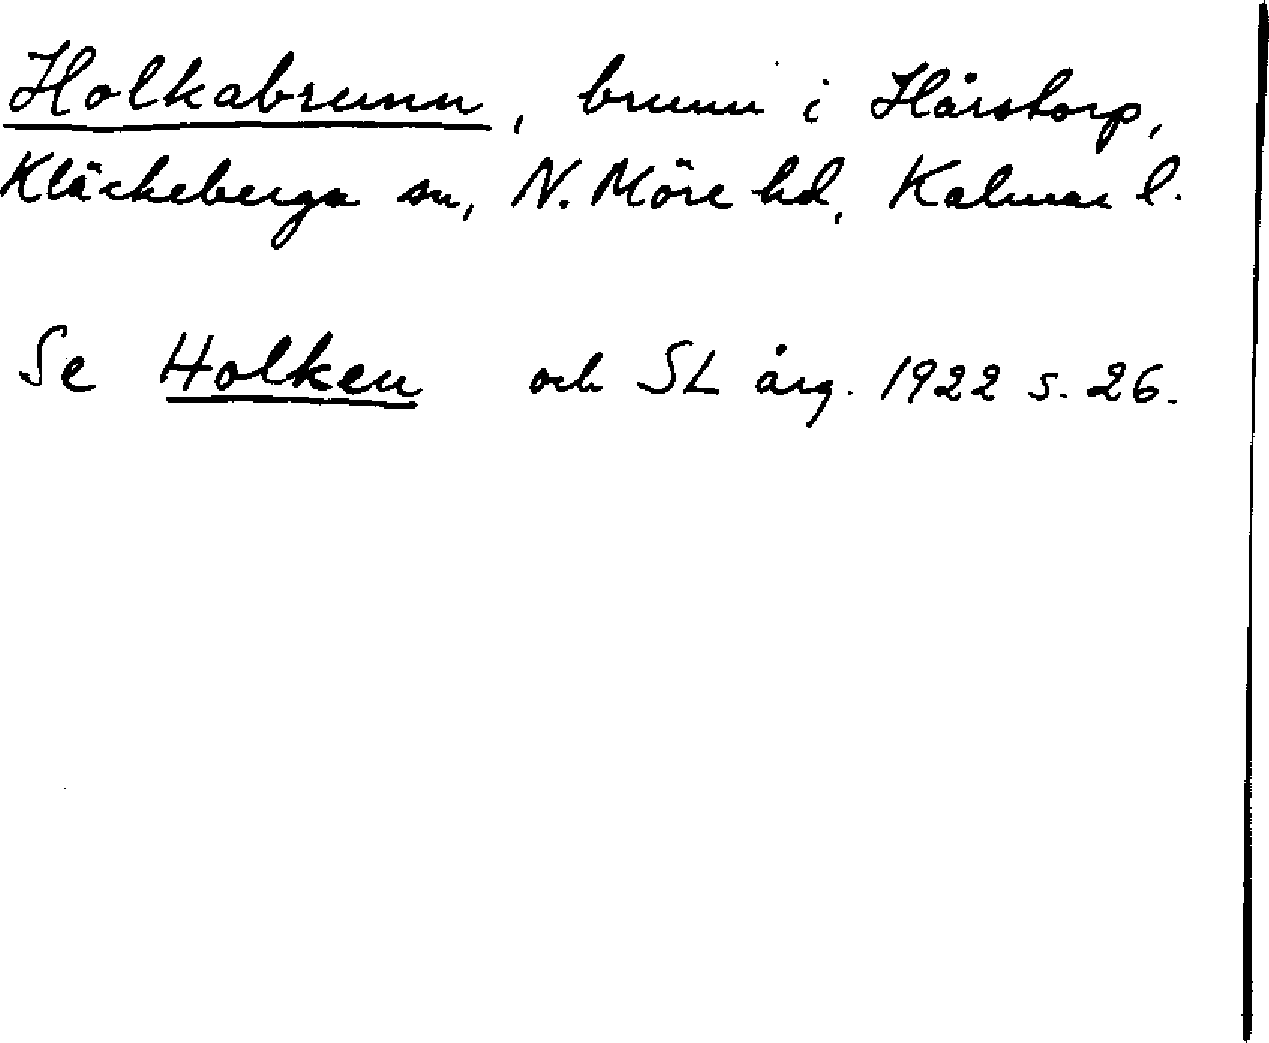 Holkabrunn, brunn i Hårstorp,
Kläckeberga sn, N. Möre hd, Kalmar l.
Se Holken och SL årg. 1922 s. 26.